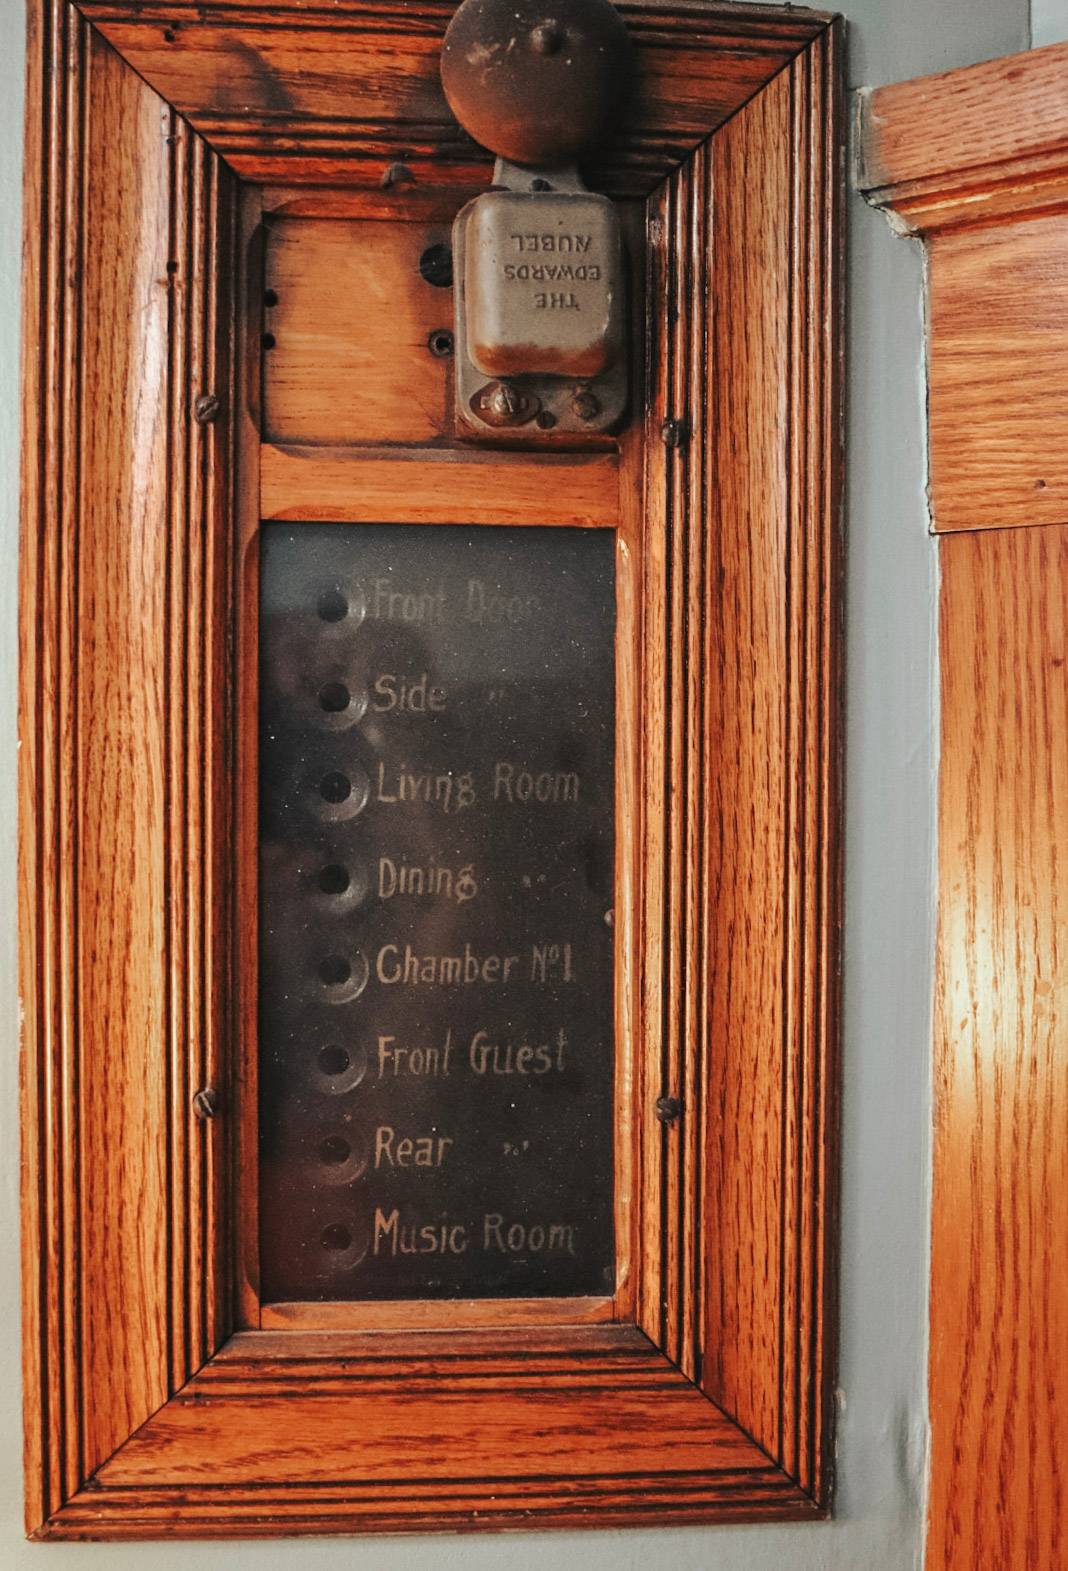 THE
EDWARDS
AUBEL
Front Door
Side "
Living Room
Dining "
Chamber Nº1
Front Guest
Rear "
Music Room